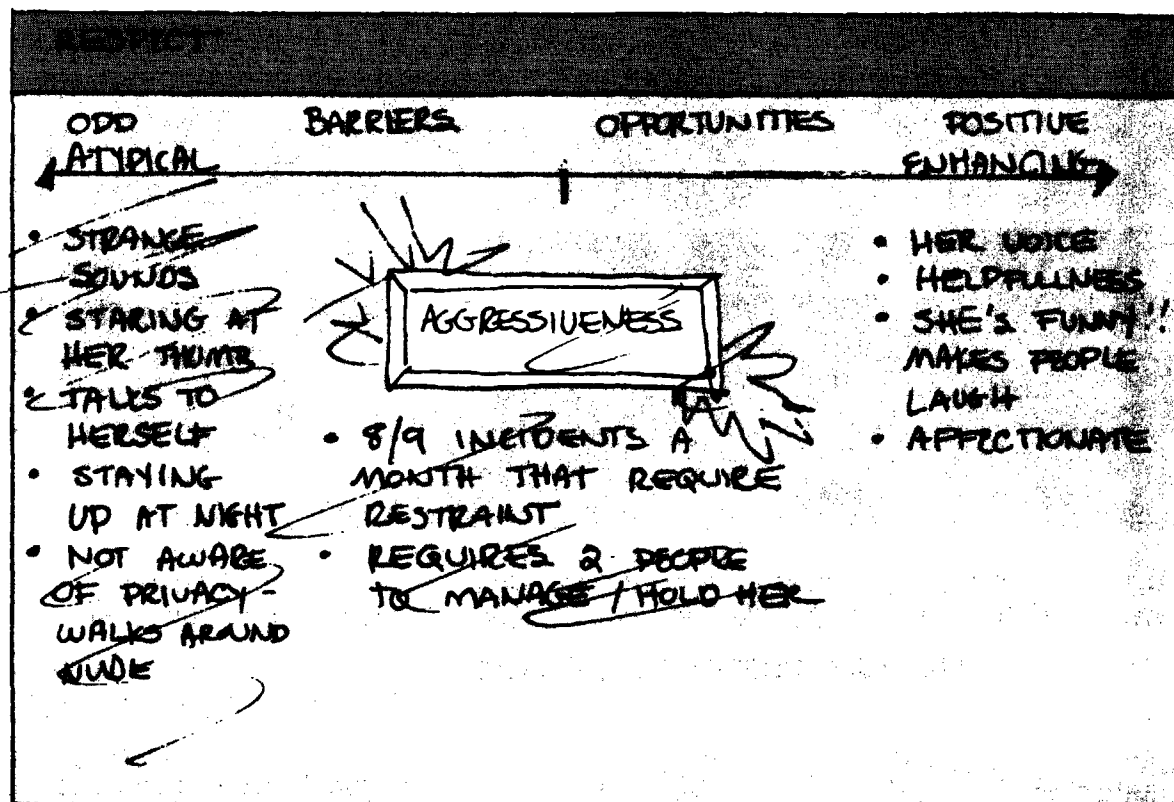 RESPECT
ODD
ATYPICAL
BARRIERS
OPPORTUNITIES
POSITIVE
ENHANCING
• STRANGE
SOUNDS
• STARING AT
HER THUMB
• TALKS TO
HERSELF
• STAYING
UP AT NIGHT
• NOT AWARE
OF PRIVACY -
WALKS AROUND
NUDE
AGGRESSIVENESS
• 8/9 INCIDENTS A
MONTH THAT REQUIRE
RESTRAINT
• REQUIRES 2 PEOPLE
TO MANAGE / HOLD HER
• HER VOICE
• HELPFULLNESS
• SHE'S FUNNY!!
MAKES PEOPLE
LAUGH
• AFFECTIONATE